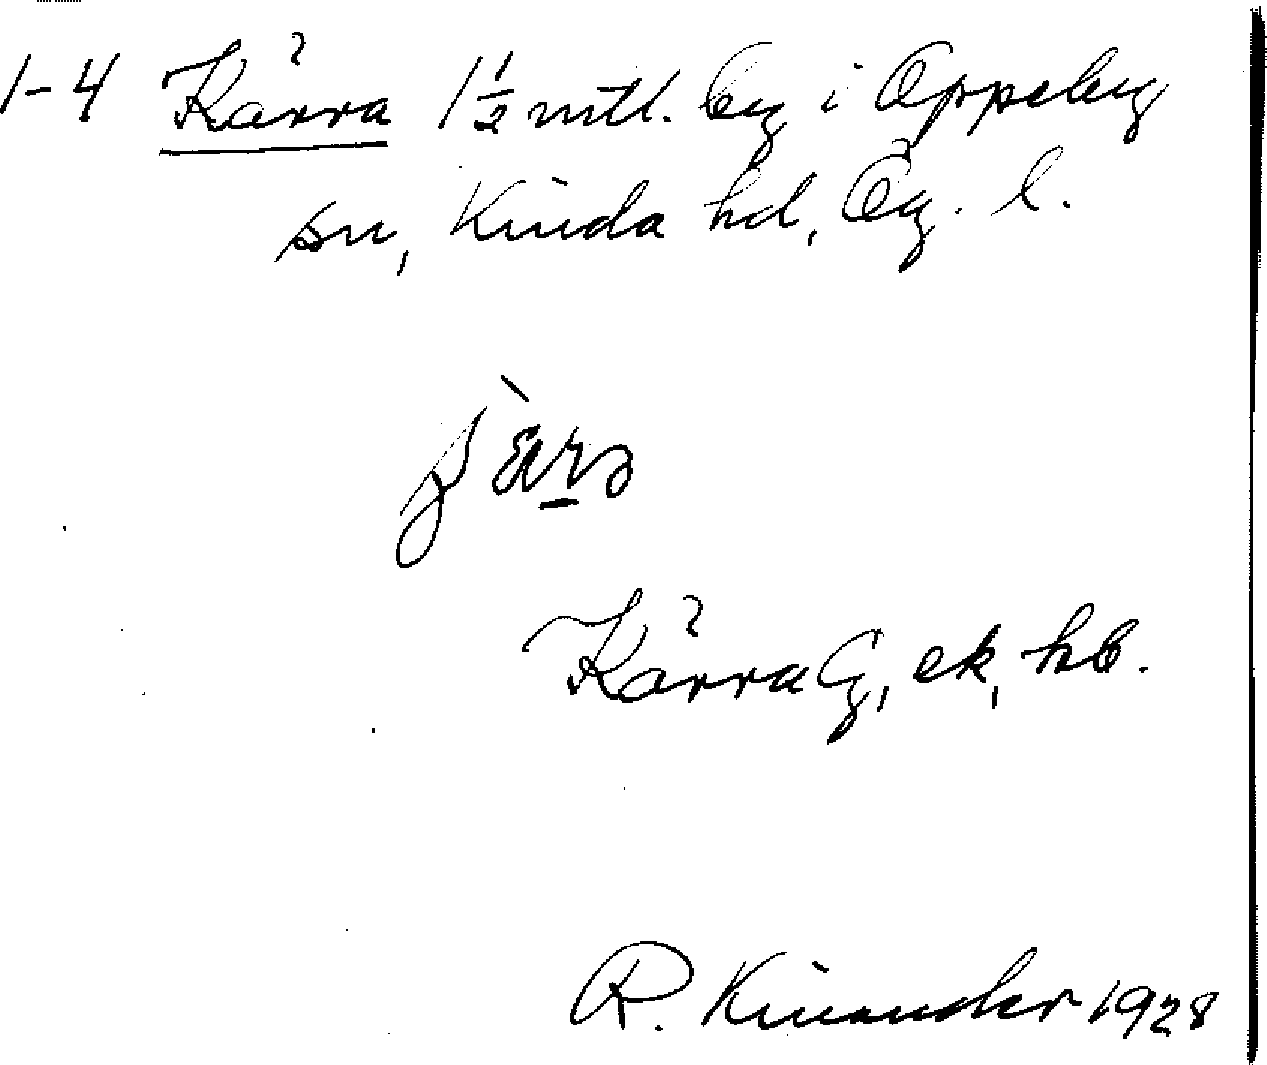 1-4 Kärra 1 1/2 mtl. by i Oppeby
sn, Kinda hd, Ög. l.
Kärra G, ek, hb.
R. Kinander 1928